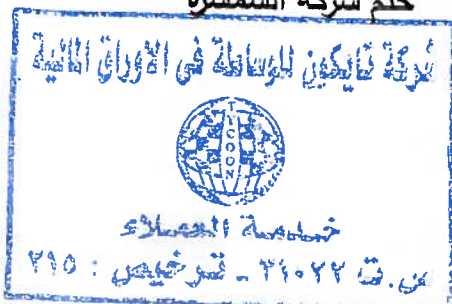 ختم شركة السمسرة
شركة تايكون للوساطة فى الاوراق المالية
TYCOON
خدمة العملاء
س.ت ٣٤٠٢٢ - ترخيص : ٢١٥